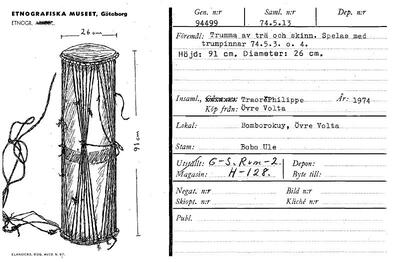 ETNOGRAFISKA MUSEET, Göteborg
ETNOGR.
26 cm
91 cm
ELANDERS, BOG. AVTR. N. 67.
Gen. n:r Saml. n:r Dep. n:r
94499 74.5.13
Föremål: Trumma av trä och skinn. Spelas med
trumpinnar 74.5.3. o. 4.
Höjd: 91 cm. Diameter: 26 cm.
Insaml., Traoré Philippe År: 1974
Köp från: Övre Volta
Lokal: Bomborokuy, Övre Volta
Stam: Bobo Ule
Utställt: G-S. Rum-2. Depon:
Magasin: H-128. Byte till:
Negat. n:r Bild n:r
Skiopt. n:r Kliché n:r
Publ.